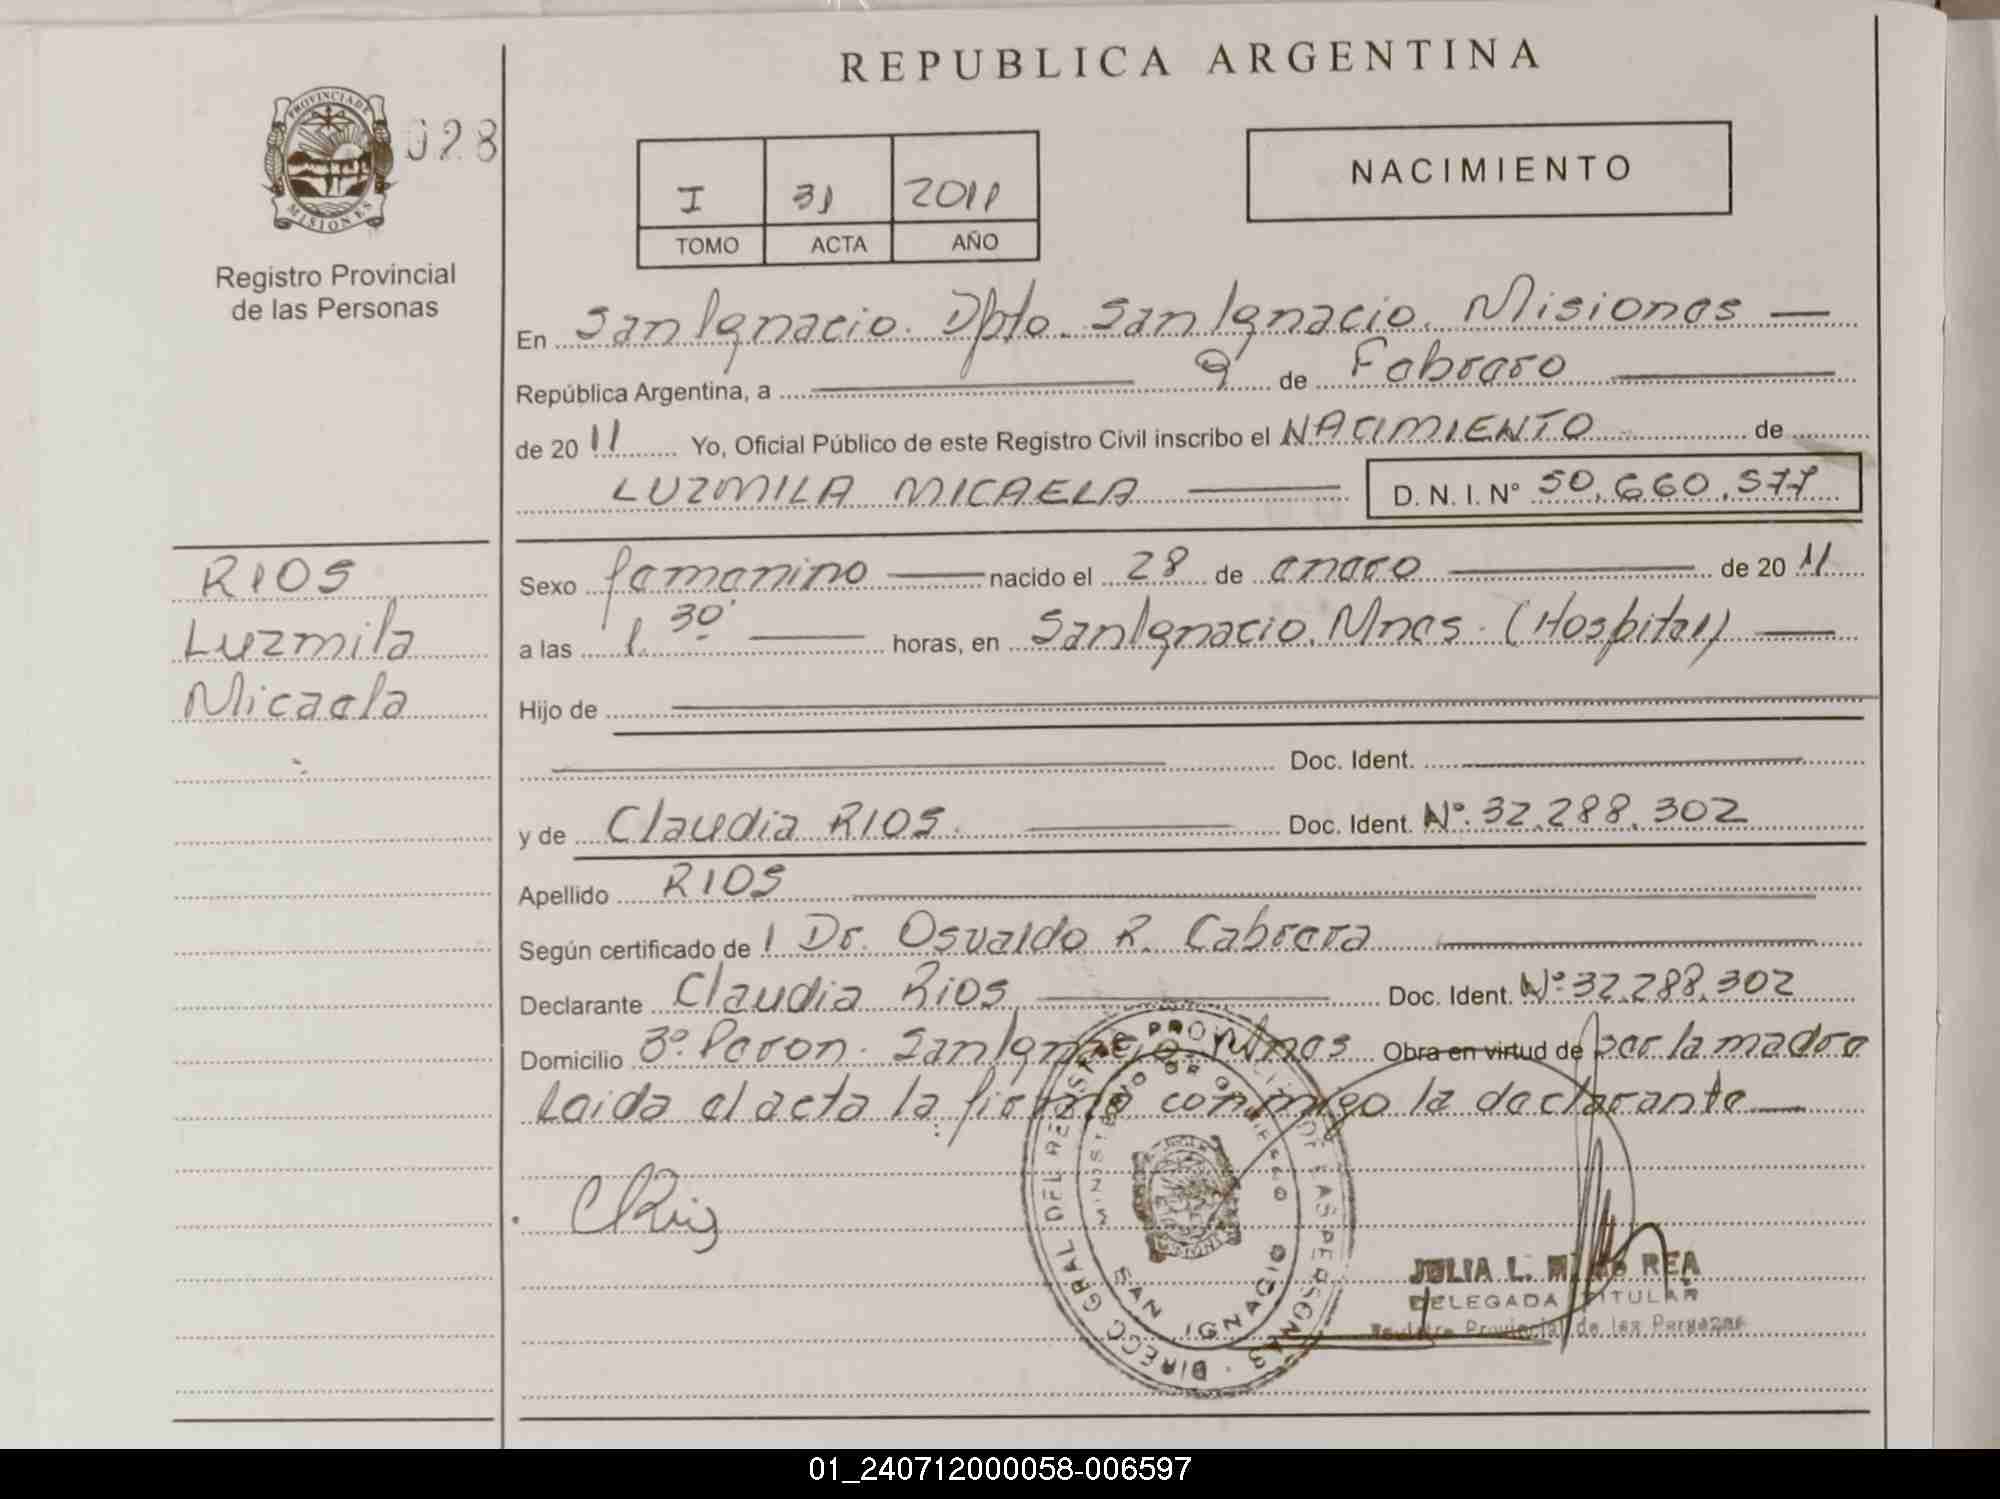 REPUBLICA ARGENTINA
PROVINCIA DE MISIONES
028
Registro Provincial
de las Personas
I 31 2011
TOMO ACTA AÑO
NACIMIENTO
En San Ignacio. Dpto. San Ignacio. Misiones
República Argentina, a 9 de Febrero
de 2011 Yo, Oficial Público de este Registro Civil inscribo el NACIMIENTO de
LUZMILA MICAELA D.N.I. N° 50.660.577
RIOS
Luzmila
Micaela
Sexo femenino nacido el 28 de enero de 2011
a las 1 30' horas, en San Ignacio. Mnes. (Hospital)
Hijo de
Doc. Ident.
y de Claudia RIOS. Doc. Ident. N°. 32.288.302
Apellido RIOS
Según certificado de Dr. Osvaldo R. Cabrera
Declarante Claudia Rios Doc. Ident. N°: 32.288.302
Domicilio B°. Peron. San Ignacio. Mnes Obra en virtud de ser la madre
Leida el acta la firma conmigo la declarante
DIRECC GRAL. DEL REGISTRO PROVINCIAL DE LAS PERSONAS
MINISTERIO DE GOBIERNO
SAN IGNACIO
JULIA L. REA
DELEGADA TITULAR
Registro Provincial de las Personas
01_240712000058-006597